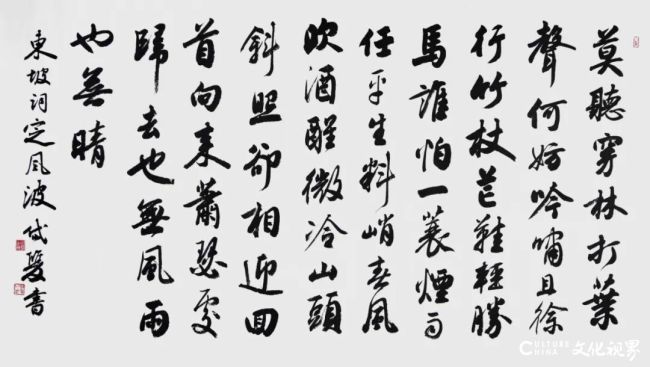 莫聽穿林打葉
聲何妨吟嘯且徐
行竹杖芒鞋輕勝
馬誰怕一蓑煙雨
任平生料峭春風
吹酒醒微冷山頭
斜照卻相迎回
首向来蕭瑟處
歸去也無風雨
也無晴
東坡詞定風波 書
CULTURE CHINA 文化视界